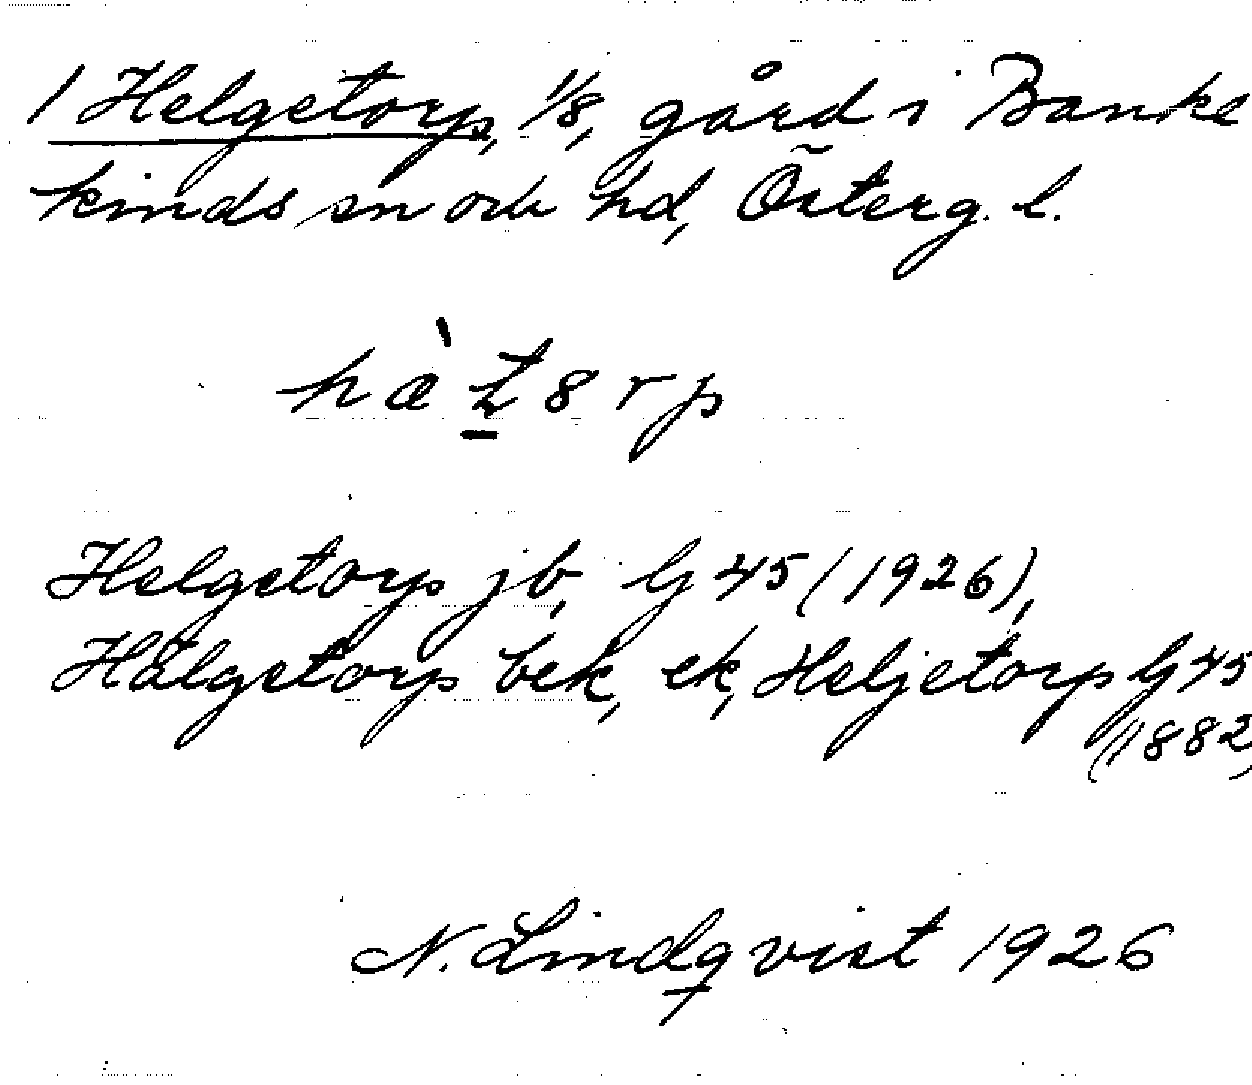 1 Helgetorp, 1/8, gård i Banke
kinds sn och hd, Österg. l.
Helgetorp jb, G 45 (1926),
Hälgetorp bek, ek, Heljetorp G 45
(1882)
N. Lindqvist 1926